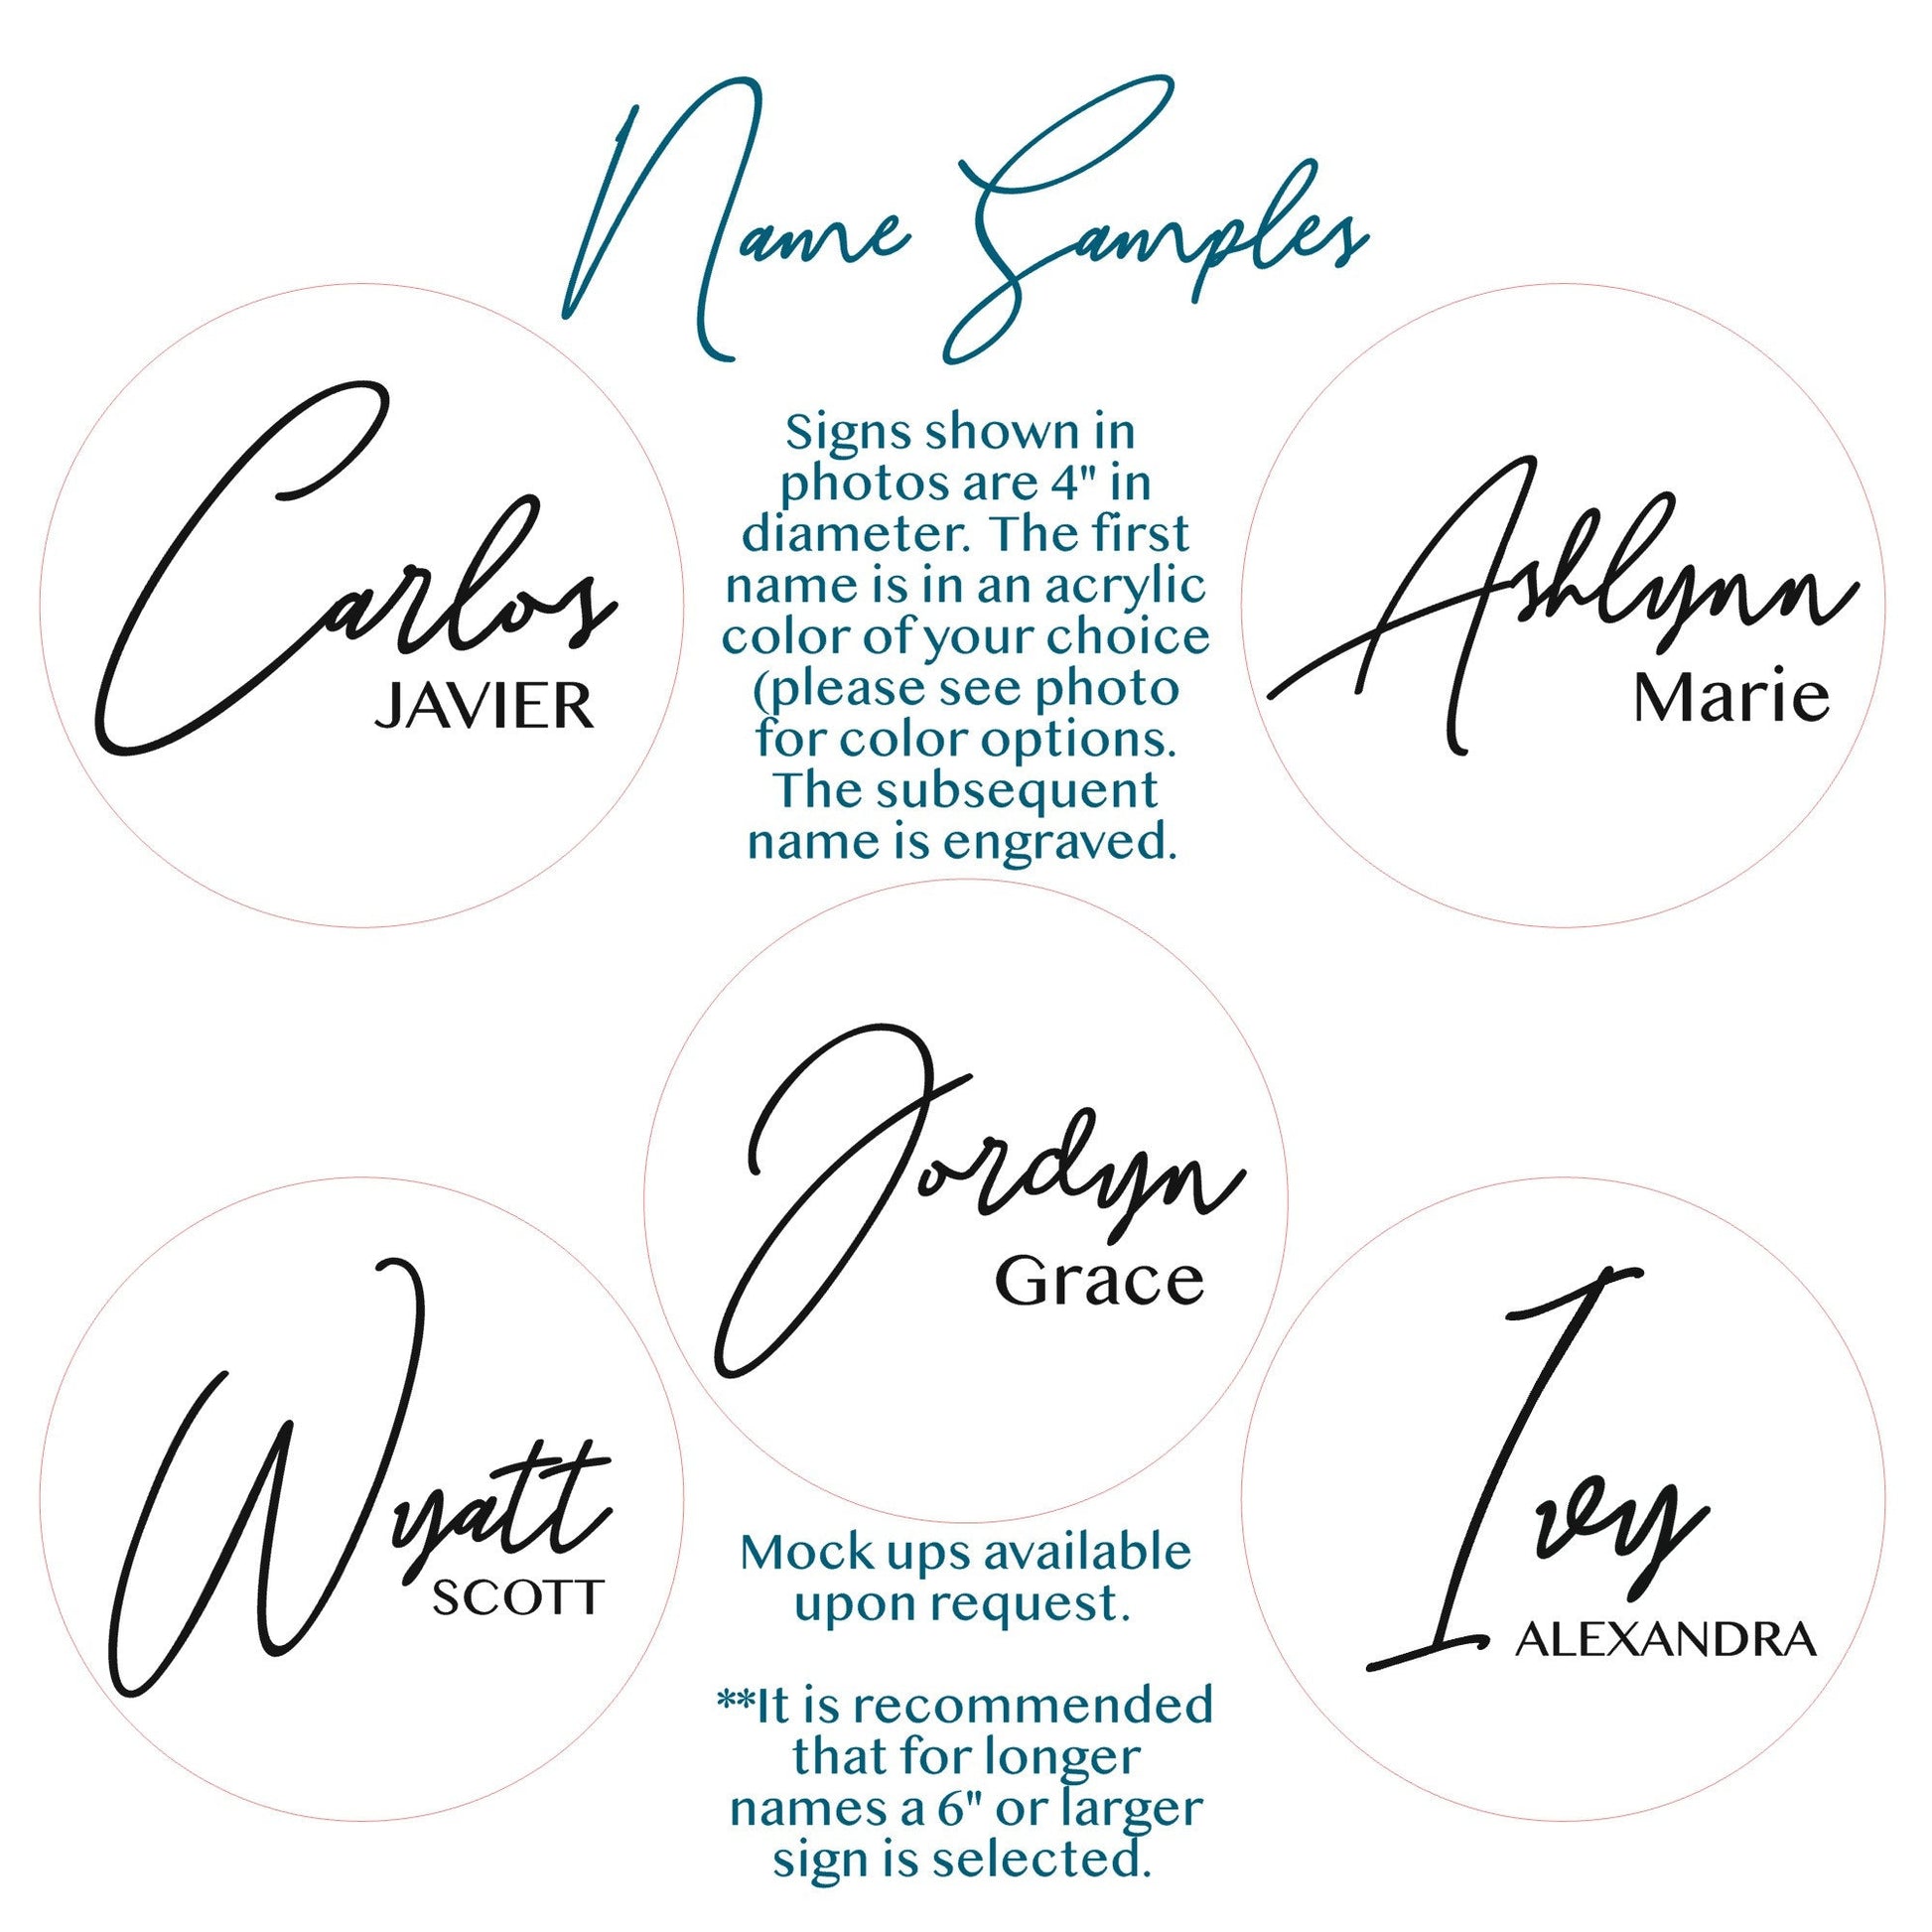 Name Samples
Carlos
JAVIER
Signs shown in
photos are 4" in
diameter. The first
name is in an acrylic
color of your choice
(please see photo
for color options.
The subsequent
name is engraved.
Ashlynn
Marie
Jordyn
Grace
Wyatt
SCOTT
Ivy
ALEXANDRA
Mock ups available
upon request.
**It is recommended
that for longer
names a 6" or larger
sign is selected.